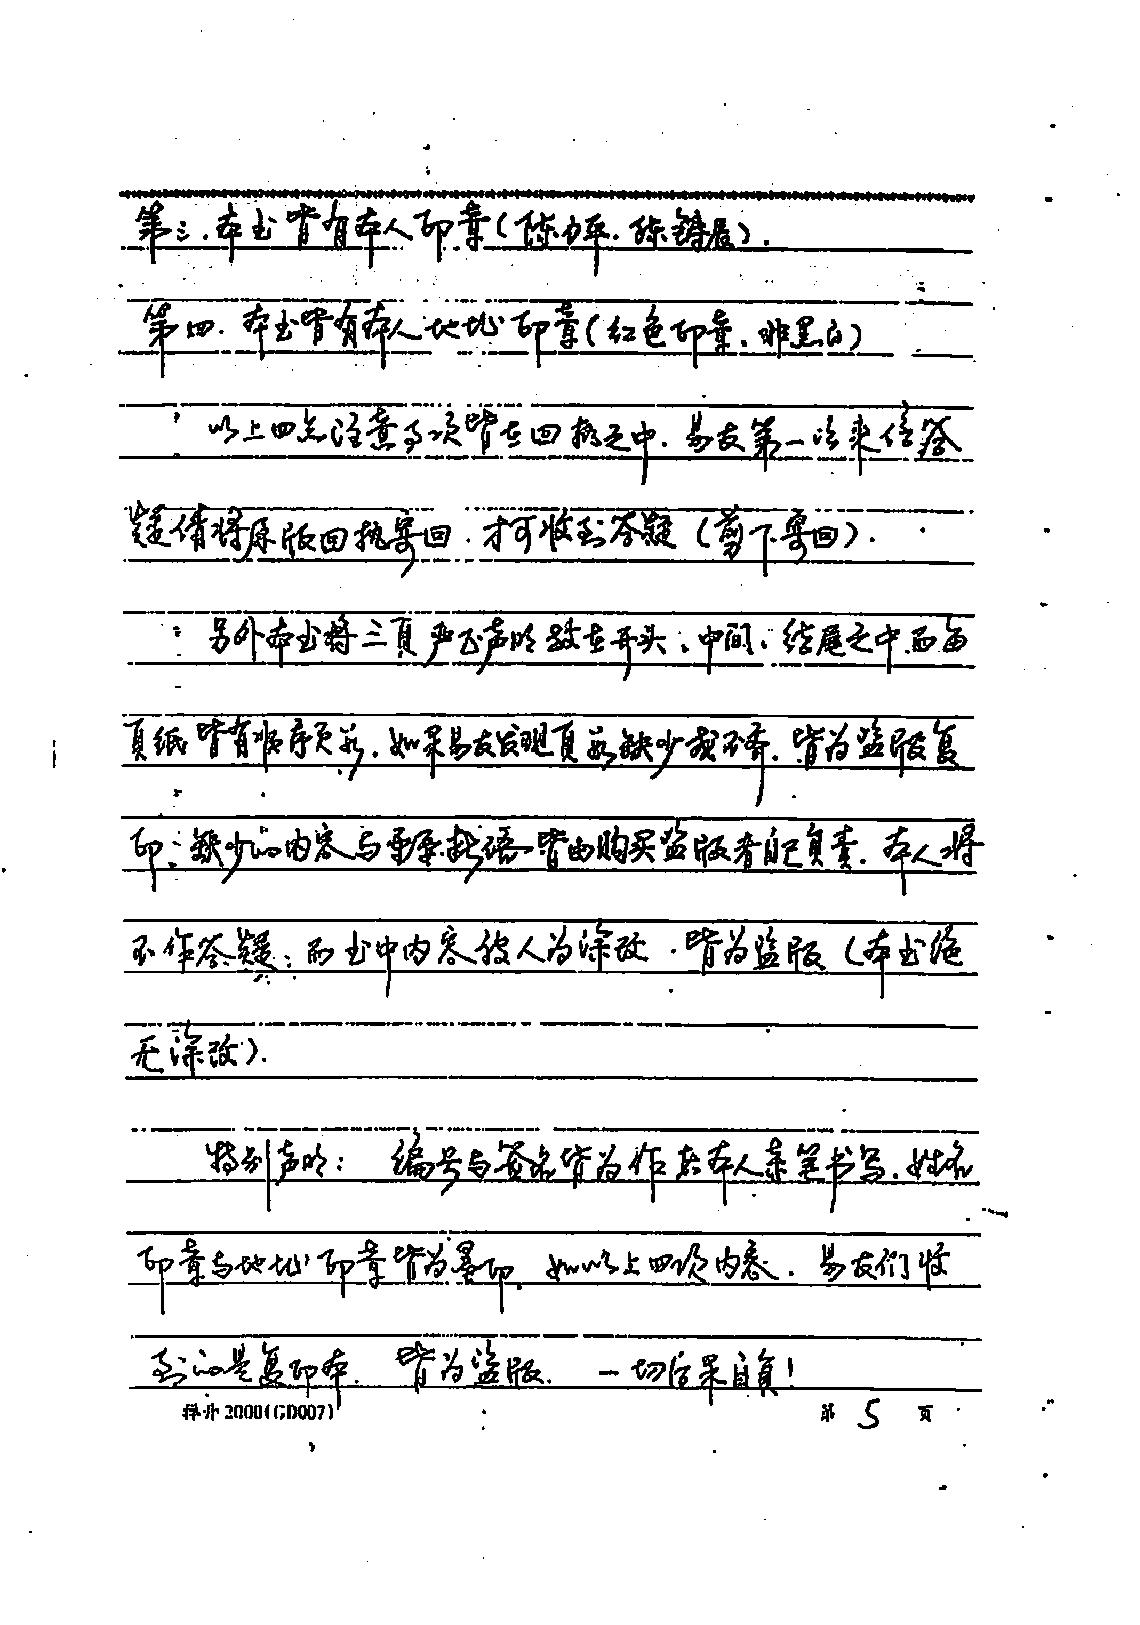 第三.本书皆有本人印章(陈力平.陈铸晨).
第四.本书皆有本人地址印章(红色印章.非黑白)
以上四点注意事项皆在回执之中.易友第一次来信答
疑请将原版回执寄回.才可收到答疑(剪下寄回).
另外本书将三页严正声明放在开头、中间、结尾之中.而每
页纸皆有顺序页数.如果易友发现页数缺少或不齐.皆为盗版复
印;缺少的内容与 皆由购买盗版者自己负责.本人将
不作答疑;而书中内容被人为涂改.皆为盗版(本书绝
无涂改).
特别声明: 编号与签名皆为作者本人亲笔书写.姓名
印章与地址印章皆为墨印.如以上四项内容.易友们收
到的是复印本.皆为盗版.一切后果自负!
20001(GD007)
第 5 页